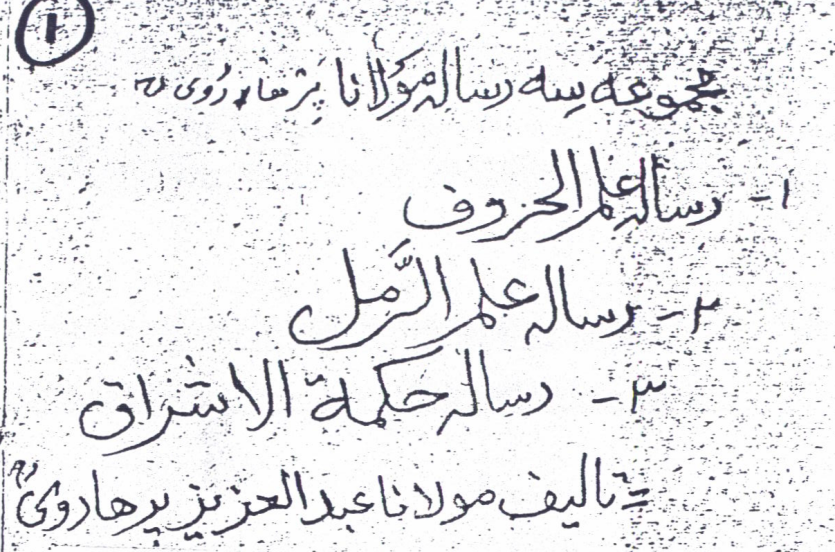 ۱
مجموعہ سہ رسالہ مولانا پَڑھاروی رح
۱- رسالہ علم الحروف
۲- رسالہ علم الرَّمل
۳- رسالہ حکمۃ الاشراق
= تالیف مولانا عبد العزیز پرھاروی رح